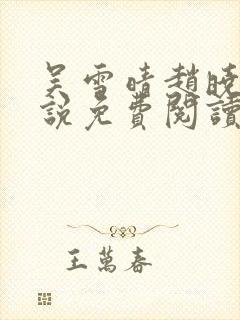 吴雪晴趙曉
說免費閱讀
王萬春